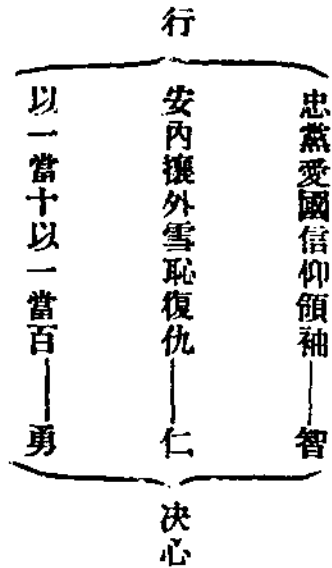 行
忠黨愛國信仰領袖——智
安內攘外雪恥復仇——仁
以一當十以一當百——勇
決心